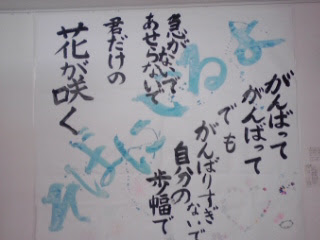 がんばって
がんばって
でも
がんばりすぎないで
自分の
歩幅で
急がないで
あせらないで
君だけの
花が咲く